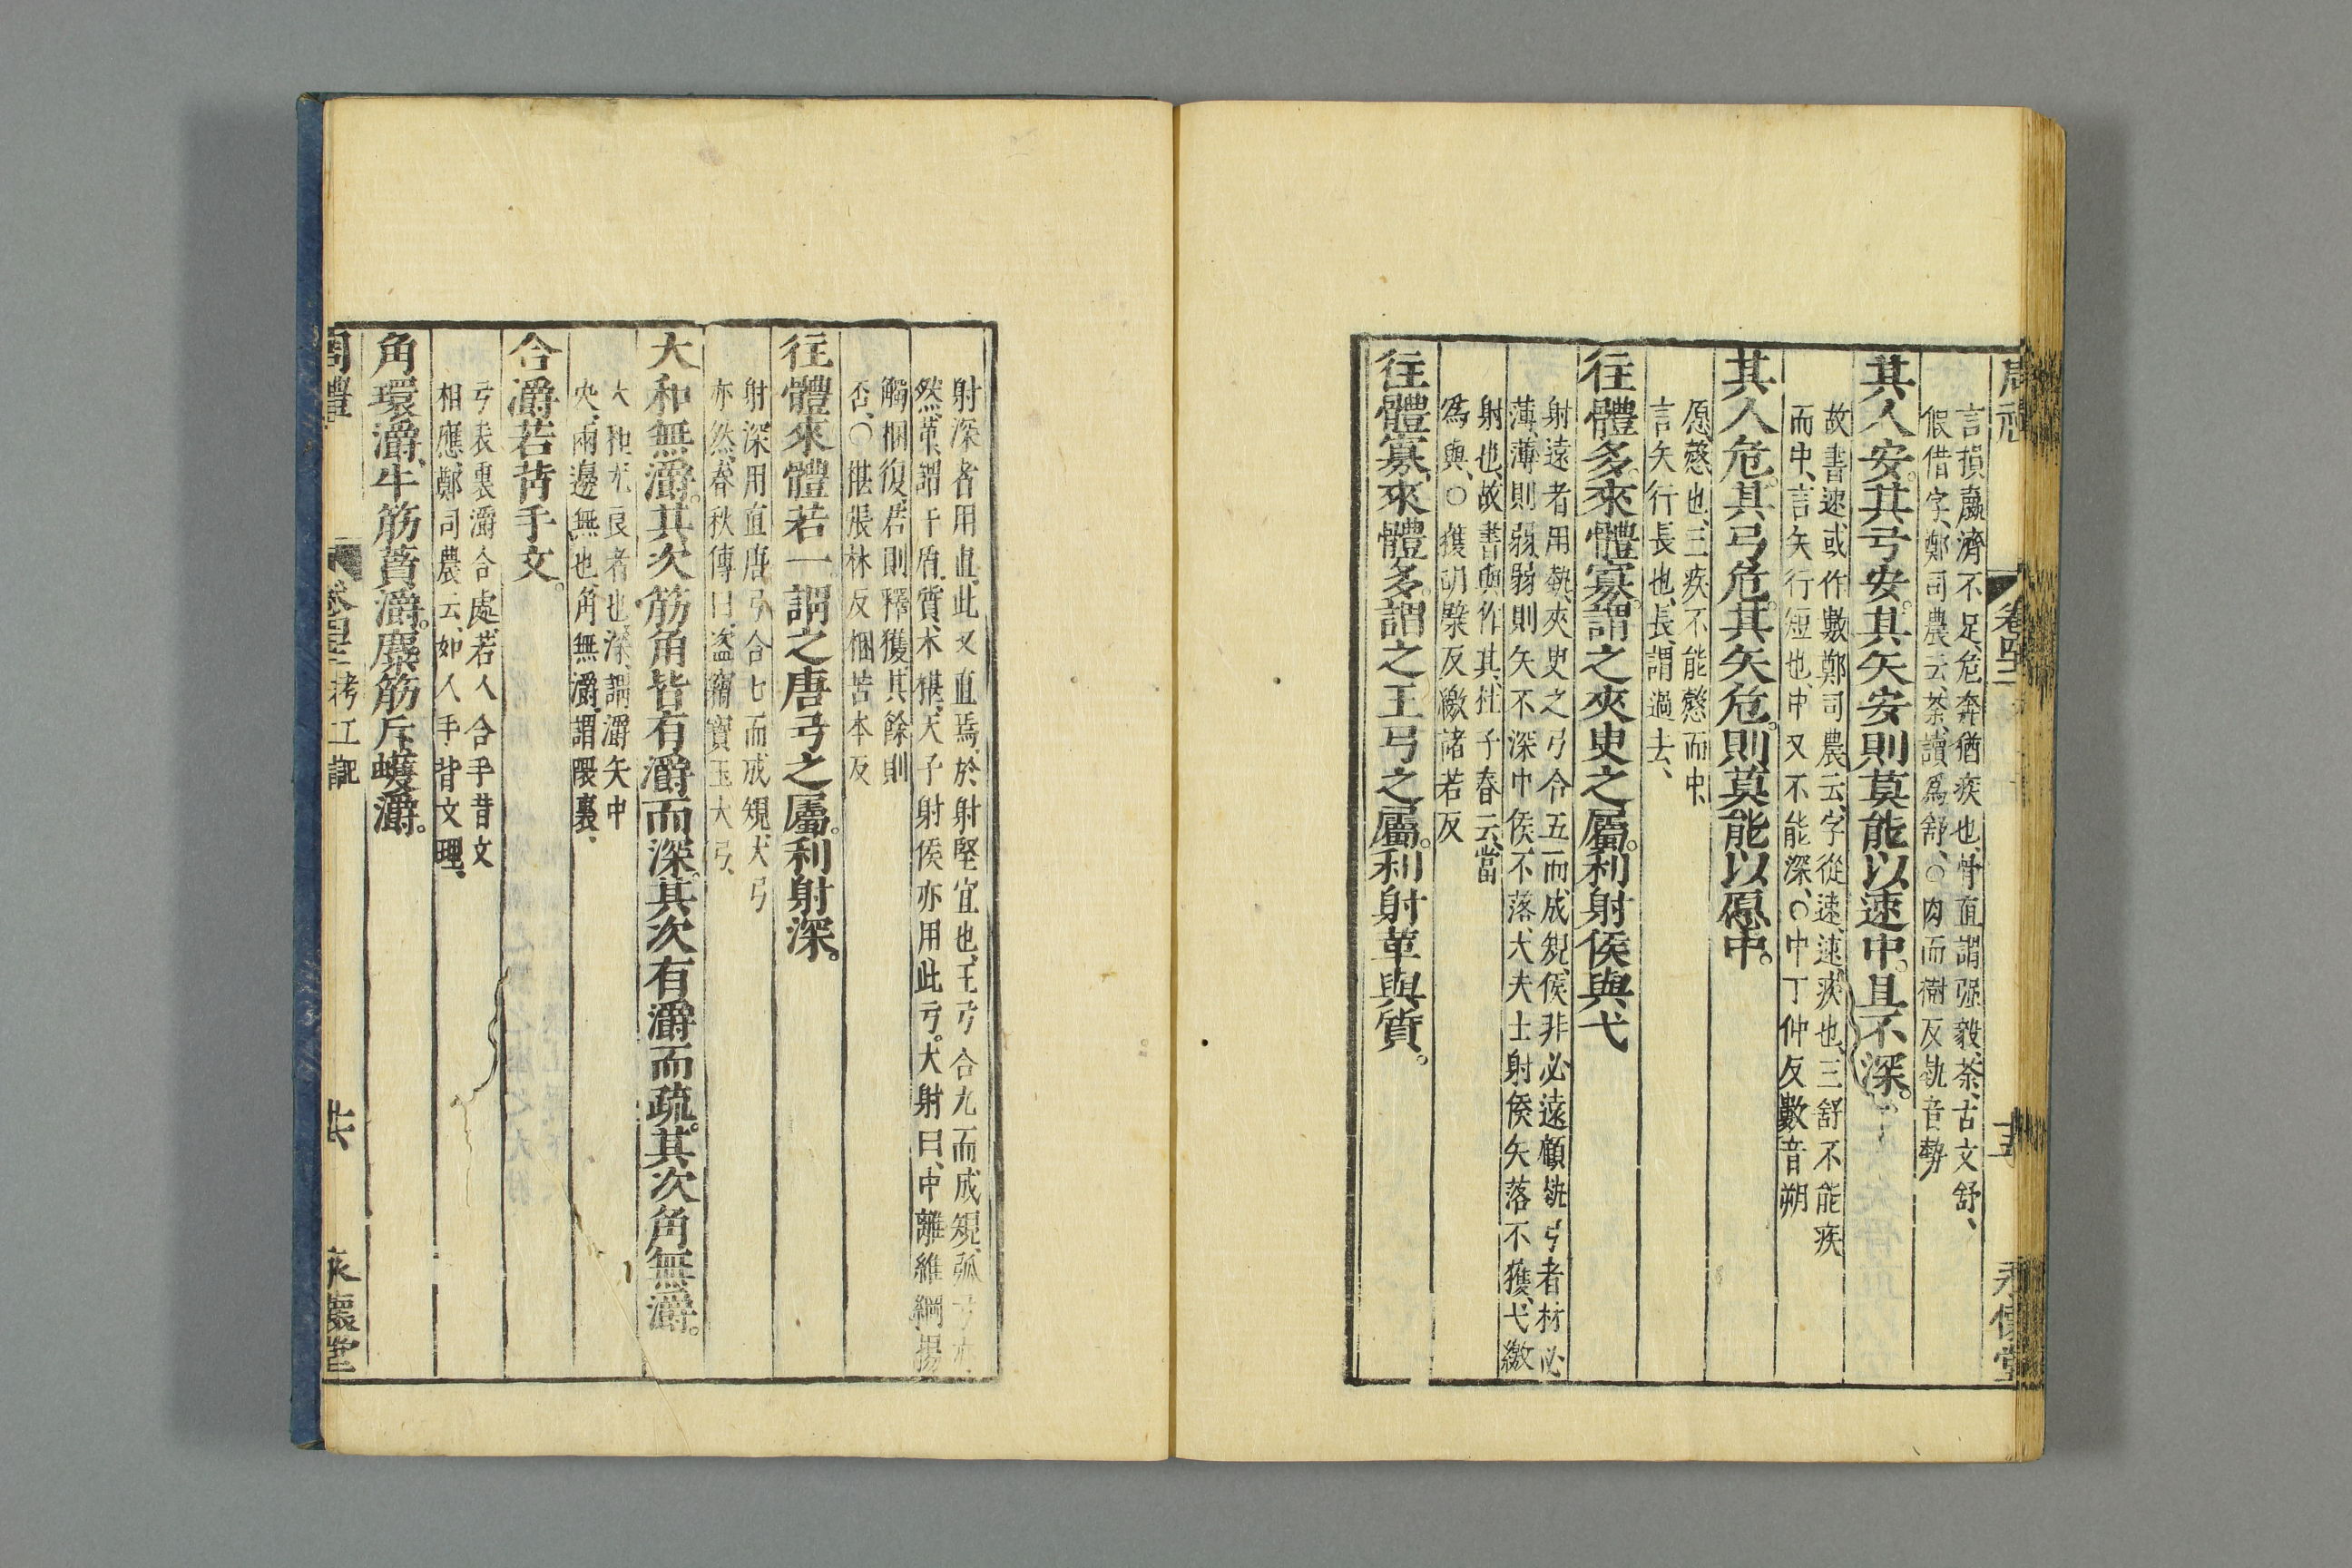 卷四十二
永懷堂
言損贏濟不足、危奔猶疾也、骨直謂强毅、荼、古文舒、
假借字、鄭司農云、荼、讀爲舒、○肉而樹反埶音勢
其人安。其弓安。其矢安則莫能以速中。且不深。
故書速或作數鄭司農云、字從速、速、疾也、三舒不能疾
而中、言矢行短也、中又不能深、○中丁仲反數音朔
其人危。其弓危。其矢危。則莫能以愿中。
愿慤也、三疾不能慤而中、
言矢行長也、長、謂過去、
往體多。來體寡。謂之夾臾之屬。利射侯與弋
射遠者用埶、夾臾之弓合五而成規、侯非必遠顧埶弓者材必
薄、薄則弱、弱則矢不深中侯不落、大夫士射侯矢落不獲、弋繳
射也、故書與作其、杜子春云、當
爲與、○獲胡檗反繳諸若反
往體寡。來體多。謂之王弓之屬。利射革與質。
射深者用直、此又直焉、於射堅宜也、王弓合九而成規、弧弓亦
然、革、謂干盾、質、木椹、天子射侯亦用此弓。大射曰、中離維綱揚
觸梱復、君則釋獲其餘則
否、○椹張林反梱苦本反
往體來體若一謂之唐弓之屬。利射深。
射深用直唐弓合七而成規、大弓
亦然、春秋傳曰、盜竊寶玉大弓、
大和無灂。其次筋角皆有灂而深。其次有灂而疏。其次角無灂。
大和尤良者也、深、謂灂矢中
央、兩邊無也、角無灂、謂隈裏、
合灂若背手文。
弓表裏灂合處、若人合手背文
相應、鄭司農云、如人手背文理、
角環灂、牛筋蕡灂。麋筋斥蠖灂。
周禮
卷四十二考工記
共
永懷堂